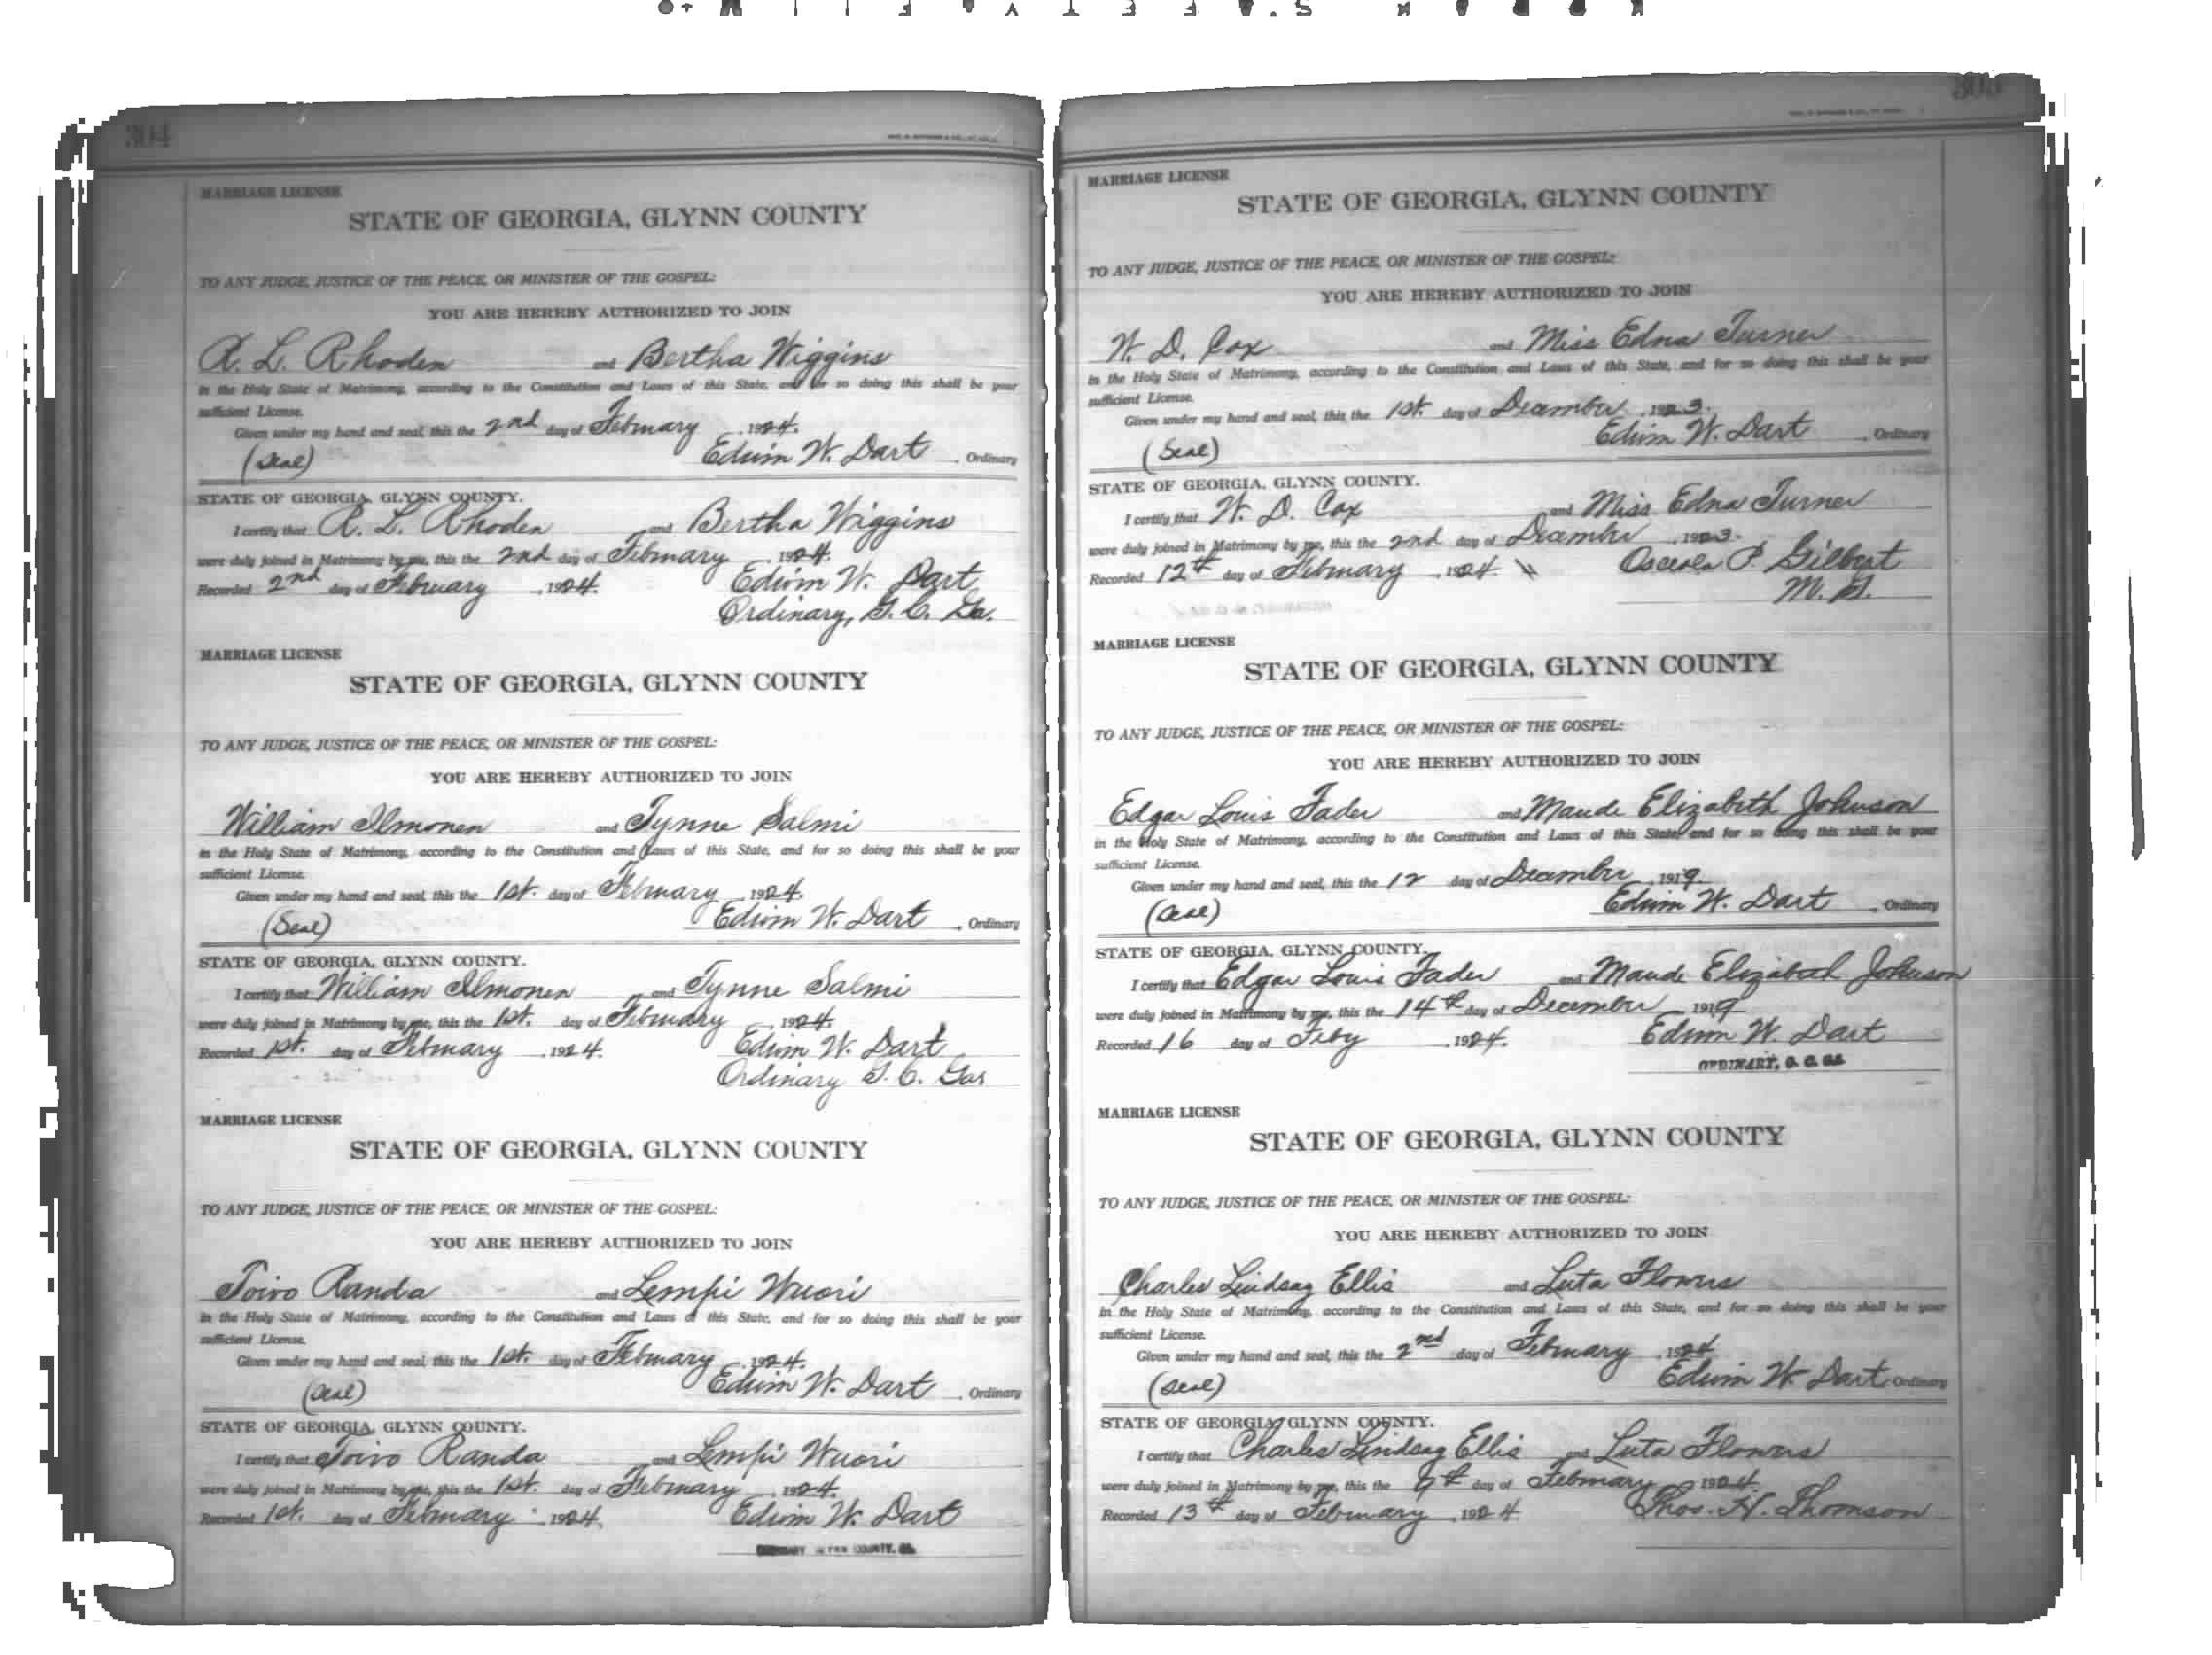 MARRIAGE LICENSE
STATE OF GEORGIA, GLYNN COUNTY
TO ANY JUDGE, JUSTICE OF THE PEACE, OR MINISTER OF THE GOSPEL:
YOU ARE HEREBY AUTHORIZED TO JOIN
R. L. Rhoden and Bertha Wiggins
in the Holy State of Matrimony, according to the Constitution and Laws of this State, and for so doing this shall be your
sufficient License.
Given under my hand and seal, this the 2nd day of February , 1924.
(Seal) Edwin W. Dart , Ordinary
STATE OF GEORGIA, GLYNN COUNTY.
I certify that R. L. Rhoden and Bertha Wiggins
were duly joined in Matrimony by me, this the 2nd day of February , 1924.
Recorded 2nd day of February , 1924. Edwin W. Dart
Ordinary, G. C. Ga.
MARRIAGE LICENSE
STATE OF GEORGIA, GLYNN COUNTY
TO ANY JUDGE, JUSTICE OF THE PEACE, OR MINISTER OF THE GOSPEL:
YOU ARE HEREBY AUTHORIZED TO JOIN
William Ilmonen and Tynne Salmi
in the Holy State of Matrimony, according to the Constitution and Laws of this State, and for so doing this shall be your
sufficient License.
Given under my hand and seal, this the 1st. day of February , 1924.
(Seal) Edwin W. Dart , Ordinary
STATE OF GEORGIA, GLYNN COUNTY.
I certify that William Ilmonen and Tynne Salmi
were duly joined in Matrimony by me, this the 1st. day of February , 1924.
Recorded 1st. day of February , 1924. Edwin W. Dart
Ordinary G. C. Ga.
MARRIAGE LICENSE
STATE OF GEORGIA, GLYNN COUNTY
TO ANY JUDGE, JUSTICE OF THE PEACE, OR MINISTER OF THE GOSPEL:
YOU ARE HEREBY AUTHORIZED TO JOIN
Toivo Randa and Lempi Wuori
in the Holy State of Matrimony, according to the Constitution and Laws of this State, and for so doing this shall be your
sufficient License.
Given under my hand and seal, this the 1st. day of February , 1924.
(Seal) Edwin W. Dart , Ordinary
STATE OF GEORGIA, GLYNN COUNTY.
I certify that Toivo Randa and Lempi Wuori
were duly joined in Matrimony by me, this the 1st. day of February , 1924.
Recorded 1st. day of February , 1924. Edwin W. Dart
ORDINARY GLYNN COUNTY, GA.
MARRIAGE LICENSE
STATE OF GEORGIA, GLYNN COUNTY
TO ANY JUDGE, JUSTICE OF THE PEACE, OR MINISTER OF THE GOSPEL:
YOU ARE HEREBY AUTHORIZED TO JOIN
W. D. Cox and Miss Edna Turner
in the Holy State of Matrimony, according to the Constitution and Laws of this State, and for so doing this shall be your
sufficient License.
Given under my hand and seal, this the 1st. day of December , 1923.
(Seal) Edwin W. Dart , Ordinary
STATE OF GEORGIA, GLYNN COUNTY.
I certify that W. D. Cox and Miss Edna Turner
were duly joined in Matrimony by me, this the 2nd day of December , 1923.
Recorded 12th day of February , 1924. Osceola P. Gilbert
M. G.
MARRIAGE LICENSE
STATE OF GEORGIA, GLYNN COUNTY
TO ANY JUDGE, JUSTICE OF THE PEACE, OR MINISTER OF THE GOSPEL:
YOU ARE HEREBY AUTHORIZED TO JOIN
Edgar Louis Fader and Maude Elizabeth Johnson
in the Holy State of Matrimony, according to the Constitution and Laws of this State, and for so doing this shall be your
sufficient License.
Given under my hand and seal, this the 12 day of December , 1919.
(Seal) Edwin W. Dart , Ordinary
STATE OF GEORGIA, GLYNN COUNTY.
I certify that Edgar Louis Fader and Maude Elizabeth Johnson
were duly joined in Matrimony by me, this the 14th day of December 1919
Recorded 16 day of Feby , 1924. Edwin W. Dart
ORDINARY, G. C. GA.
MARRIAGE LICENSE
STATE OF GEORGIA, GLYNN COUNTY
TO ANY JUDGE, JUSTICE OF THE PEACE, OR MINISTER OF THE GOSPEL:
YOU ARE HEREBY AUTHORIZED TO JOIN
Charles Lindsay Ellis and Luta Flowers
in the Holy State of Matrimony, according to the Constitution and Laws of this State, and for so doing this shall be your
sufficient License.
Given under my hand and seal, this the 2nd day of February , 1924
(Seal) Edwin W. Dart Ordinary
STATE OF GEORGIA, GLYNN COUNTY.
I certify that Charles Lindsay Ellis and Luta Flowers
were duly joined in Matrimony by me, this the 9th day of February , 1924.
Recorded 13th day of February , 1924 Thos. H. Thomson